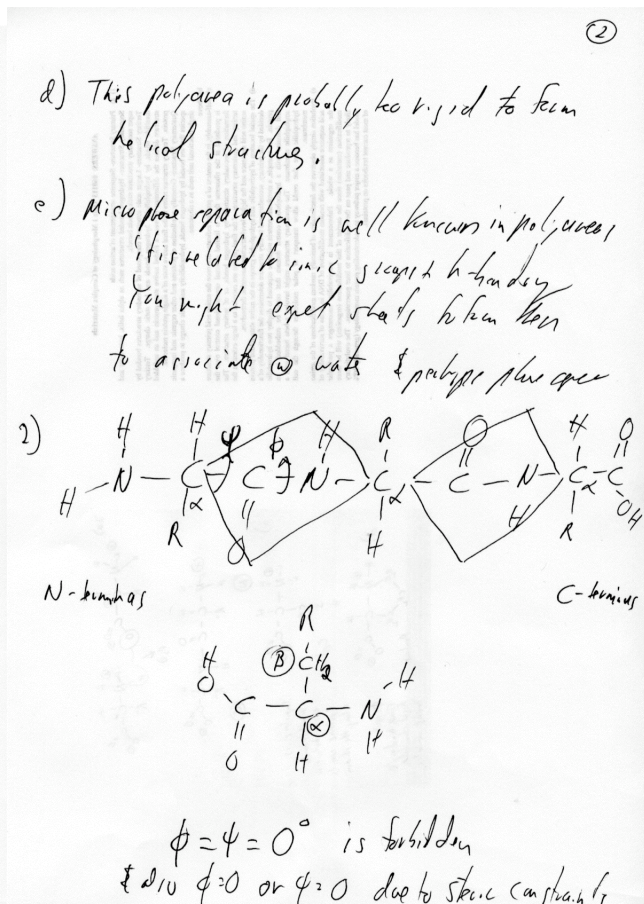 ②
d) This polyurea is probably too rigid to form
helical structures.
e) Microphase separation is well known in polyureas
it is related to ionic groups & h-bonding
You might expect sheets to form then
to associate ⓦ water & perhaps phase
2)
H H H R O H O
H N C α C N C α C N C α C
R O H H R OH
ψ φ
N-terminas C-terminus
R
H O β CH2 H
C C N
O α H H
φ = ψ = 0° is forbidden
& also φ=0 or ψ=0 due to steric constraints